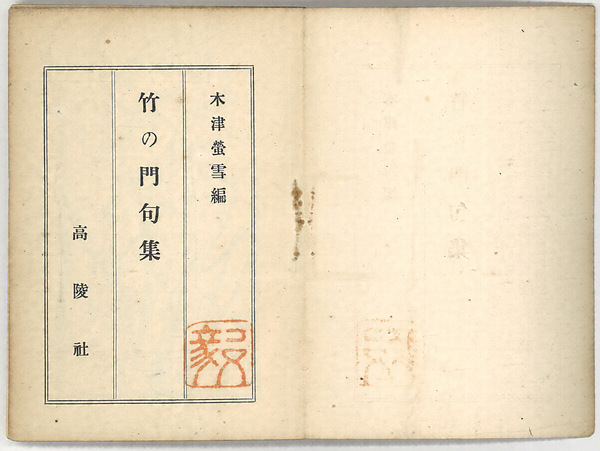 木津螢雪編
竹の門句集
高陵社